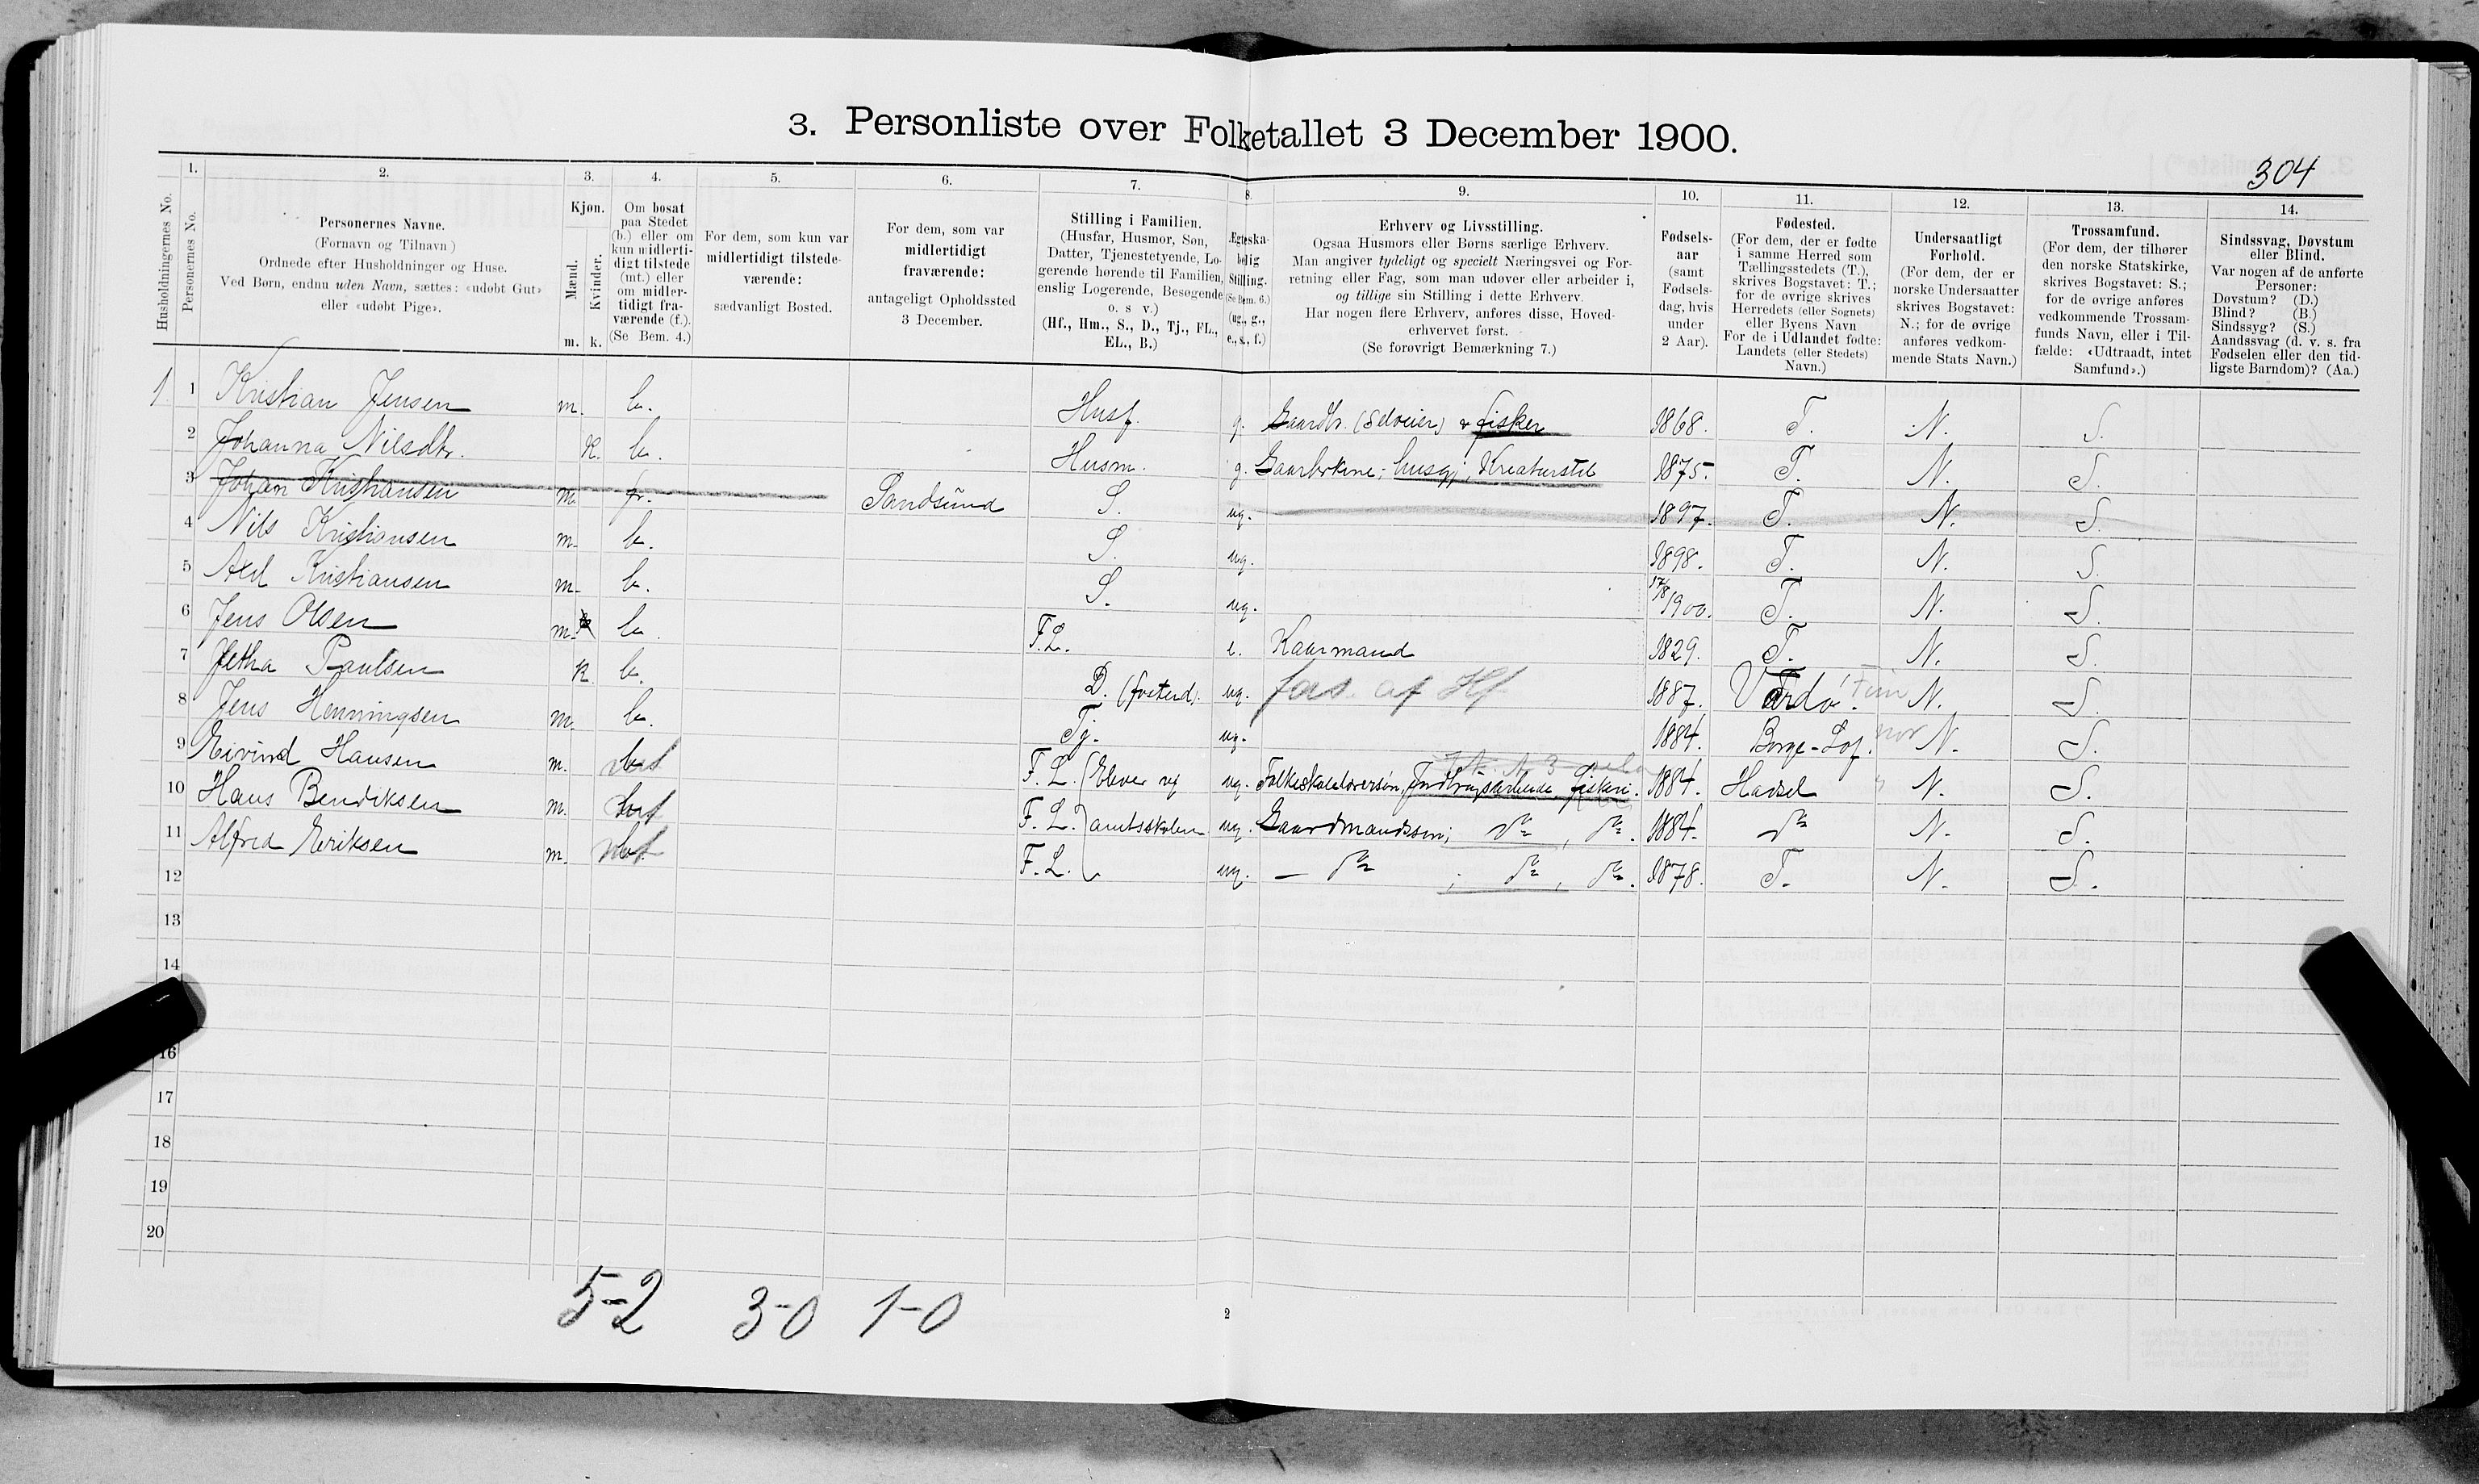 3. Personliste over Folketallet 3 December 1900.
304
1. 2. 3. 4. 5. 6. 7. 8. 9. 10. 11. 12. 13. 14.
Husholdningernes No.
Personernes No.
Personernes Navne.
(Fornavn og Tilnavn)
Ordnede efter Husholdninger og Huse.
Ved Børn, endnu uden Navn, sættes: «udøbt Gut»
eller «udøbt Pige».
Kjøn.
Mænd.
Kvinder.
m. k.
Om bosat
paa Stedet
(b.) eller om
kun midlerti-
digt tilstede
(mt.) eller
om midler-
tidigt fra-
værende (f.).
(Se Bem. 4.)
For dem, som kun var
midlertidigt tilstede-
værende:
sædvanligt Bosted.
For dem, som var
midlertidigt
fraværende:
antageligt Opholdssted
3 December.
Stilling i Familien.
(Husfar, Husmor, Søn,
Datter, Tjenestetyende, Lo-
gerende hørende til Familien,
enslig Logerende, Besøgende
o. s v.)
(Hf., Hm., S., D., Tj., FL.,
EL., B.)
Ægteska-
belig
Stilling.
(Se Bem. 6.)
(ug., g.,
e., s., f.)
Erhverv og Livsstilling.
Ogsaa Husmors eller Børns særlige Erhverv.
Man angiver tydeligt og specielt Næringsvei og For-
retning eller Fag, som man udøver eller arbeider i,
og tillige sin Stilling i dette Erhverv.
Har nogen flere Erhverv, anføres disse, Hoved-
erhvervet først.
(Se forøvrigt Bemærkning 7.)
Fødsels-
aar
(samt
Fødsels-
dag, hvis
under
2 Aar).
Fødested.
(For dem, der er fødte
i samme Herred som
Tællingsstedets (T.),
skrives Bogstavet: T.;
for de øvrige skrives
Herredets (eller Sognets)
eller Byens Navn
For de i Udlandet fødte:
Landets (eller Stedets)
Navn.)
Undersaatligt
Forhold.
(For dem, der er
norske Undersaatter
skrives Bogstavet:
N.; for de øvrige
anføres vedkom-
mende Stats Navn.)
Trossamfund.
(For dem, der tilhører
den norske Statskirke,
skrives Bogstavet: S.;
for de øvrige anføres
vedkommende Trossam-
funds Navn, eller i Til-
fælde: «Udtraadt, intet
Samfund».)
Sindssvag, Døvstum
eller Blind.
Var nogen af de anførte
Personer:
Døvstum? (D.)
Blind? (B.)
Sindssyg? (S.)
Aandssvag (d. v. s. fra
Fødselen eller den tid-
ligste Barndom)? (Aa.)
1 1 Kristian Jensen m. b. Husf. g. Gaardbr. (Selveier) & fisker 1868. T. N. S.
2 Johanna Nilsdtr. k. b. Husm. g. Gaardbrkone; husgj, Kreaturstel 1875. T. N. S.
3 Johan Kristiansen m. fr. Sandsund S. ug. 1897. T. N. S.
4 Nils Kristiansen m. b. S. ug. 1898. T. N. S.
5 Axel Kristiansen m. b. S. ug. 17/8 1900. T. N. S.
6 Jens Olsen m. b. F.L. e. Kaarmand 1829. T. N. S.
7 Jetha Paulsen k. b. D. (fosterd). ug. fors. af Hf 1887. Vardø. Fin N. S.
8 Jens Henningsen m. b. Tj. ug. 1884. Borge-Lof. Nor N. S.
9 Eivind Hansen m. mt F.L. Elever ved ug. Folkeskolelærersøn, Jordbrugsarbeide, fiskeri. 1884. Hadsel " N. S.
10 Hans Bendiksen m. mt F.L. amtsskolen ug. Gaardmandssøn; do, do. 1884. do N. S.
11 Alfred Eriksen m. mt F.L. ug. — do ; do, do. 1878. T. N. S.
12
13
14
16
17
18
19
20
5-2 3-0 1-0
2